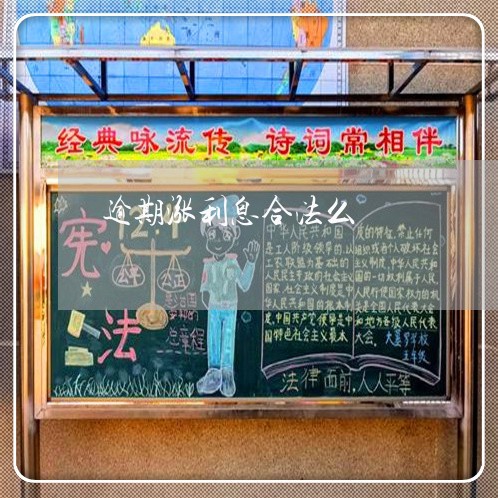 经典咏流传 诗词常相伴
逾期涨利息合法么
宪
法
公平
公正
总章程
中华人民共和国
是工人阶级领导的,以
工农联盟为基础的
人民民主专政的社会主义
国家,社会主义制度是中
华人民共和国的根本制
度,中国共产党领导是中
国特色社会主义最本
质的特征,禁止任何
组织或者个人破坏社会
主义制度,中华人民共和
国的一切权利属于人民,
人民行使国家权力的机
关是全国人民代表大会
和地方各级人民代表
大会.
学校
五年级
法律面前,人人平等